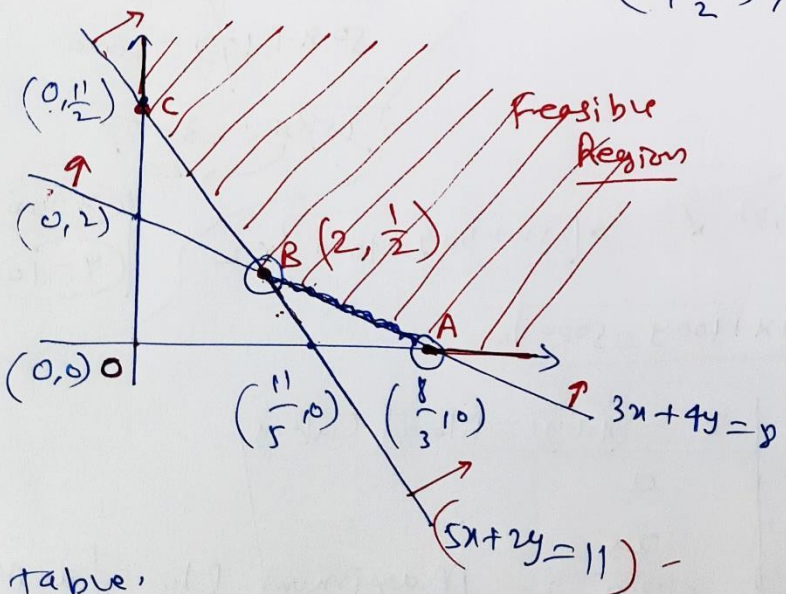 (0, 11/2) C
Feasible
Region
(0, 2)
B (2, 1/2)
A
(0,0) O
(11/5, 0) (8/3, 0)
3x + 4y = 8
(5x + 2y = 11) -
table.